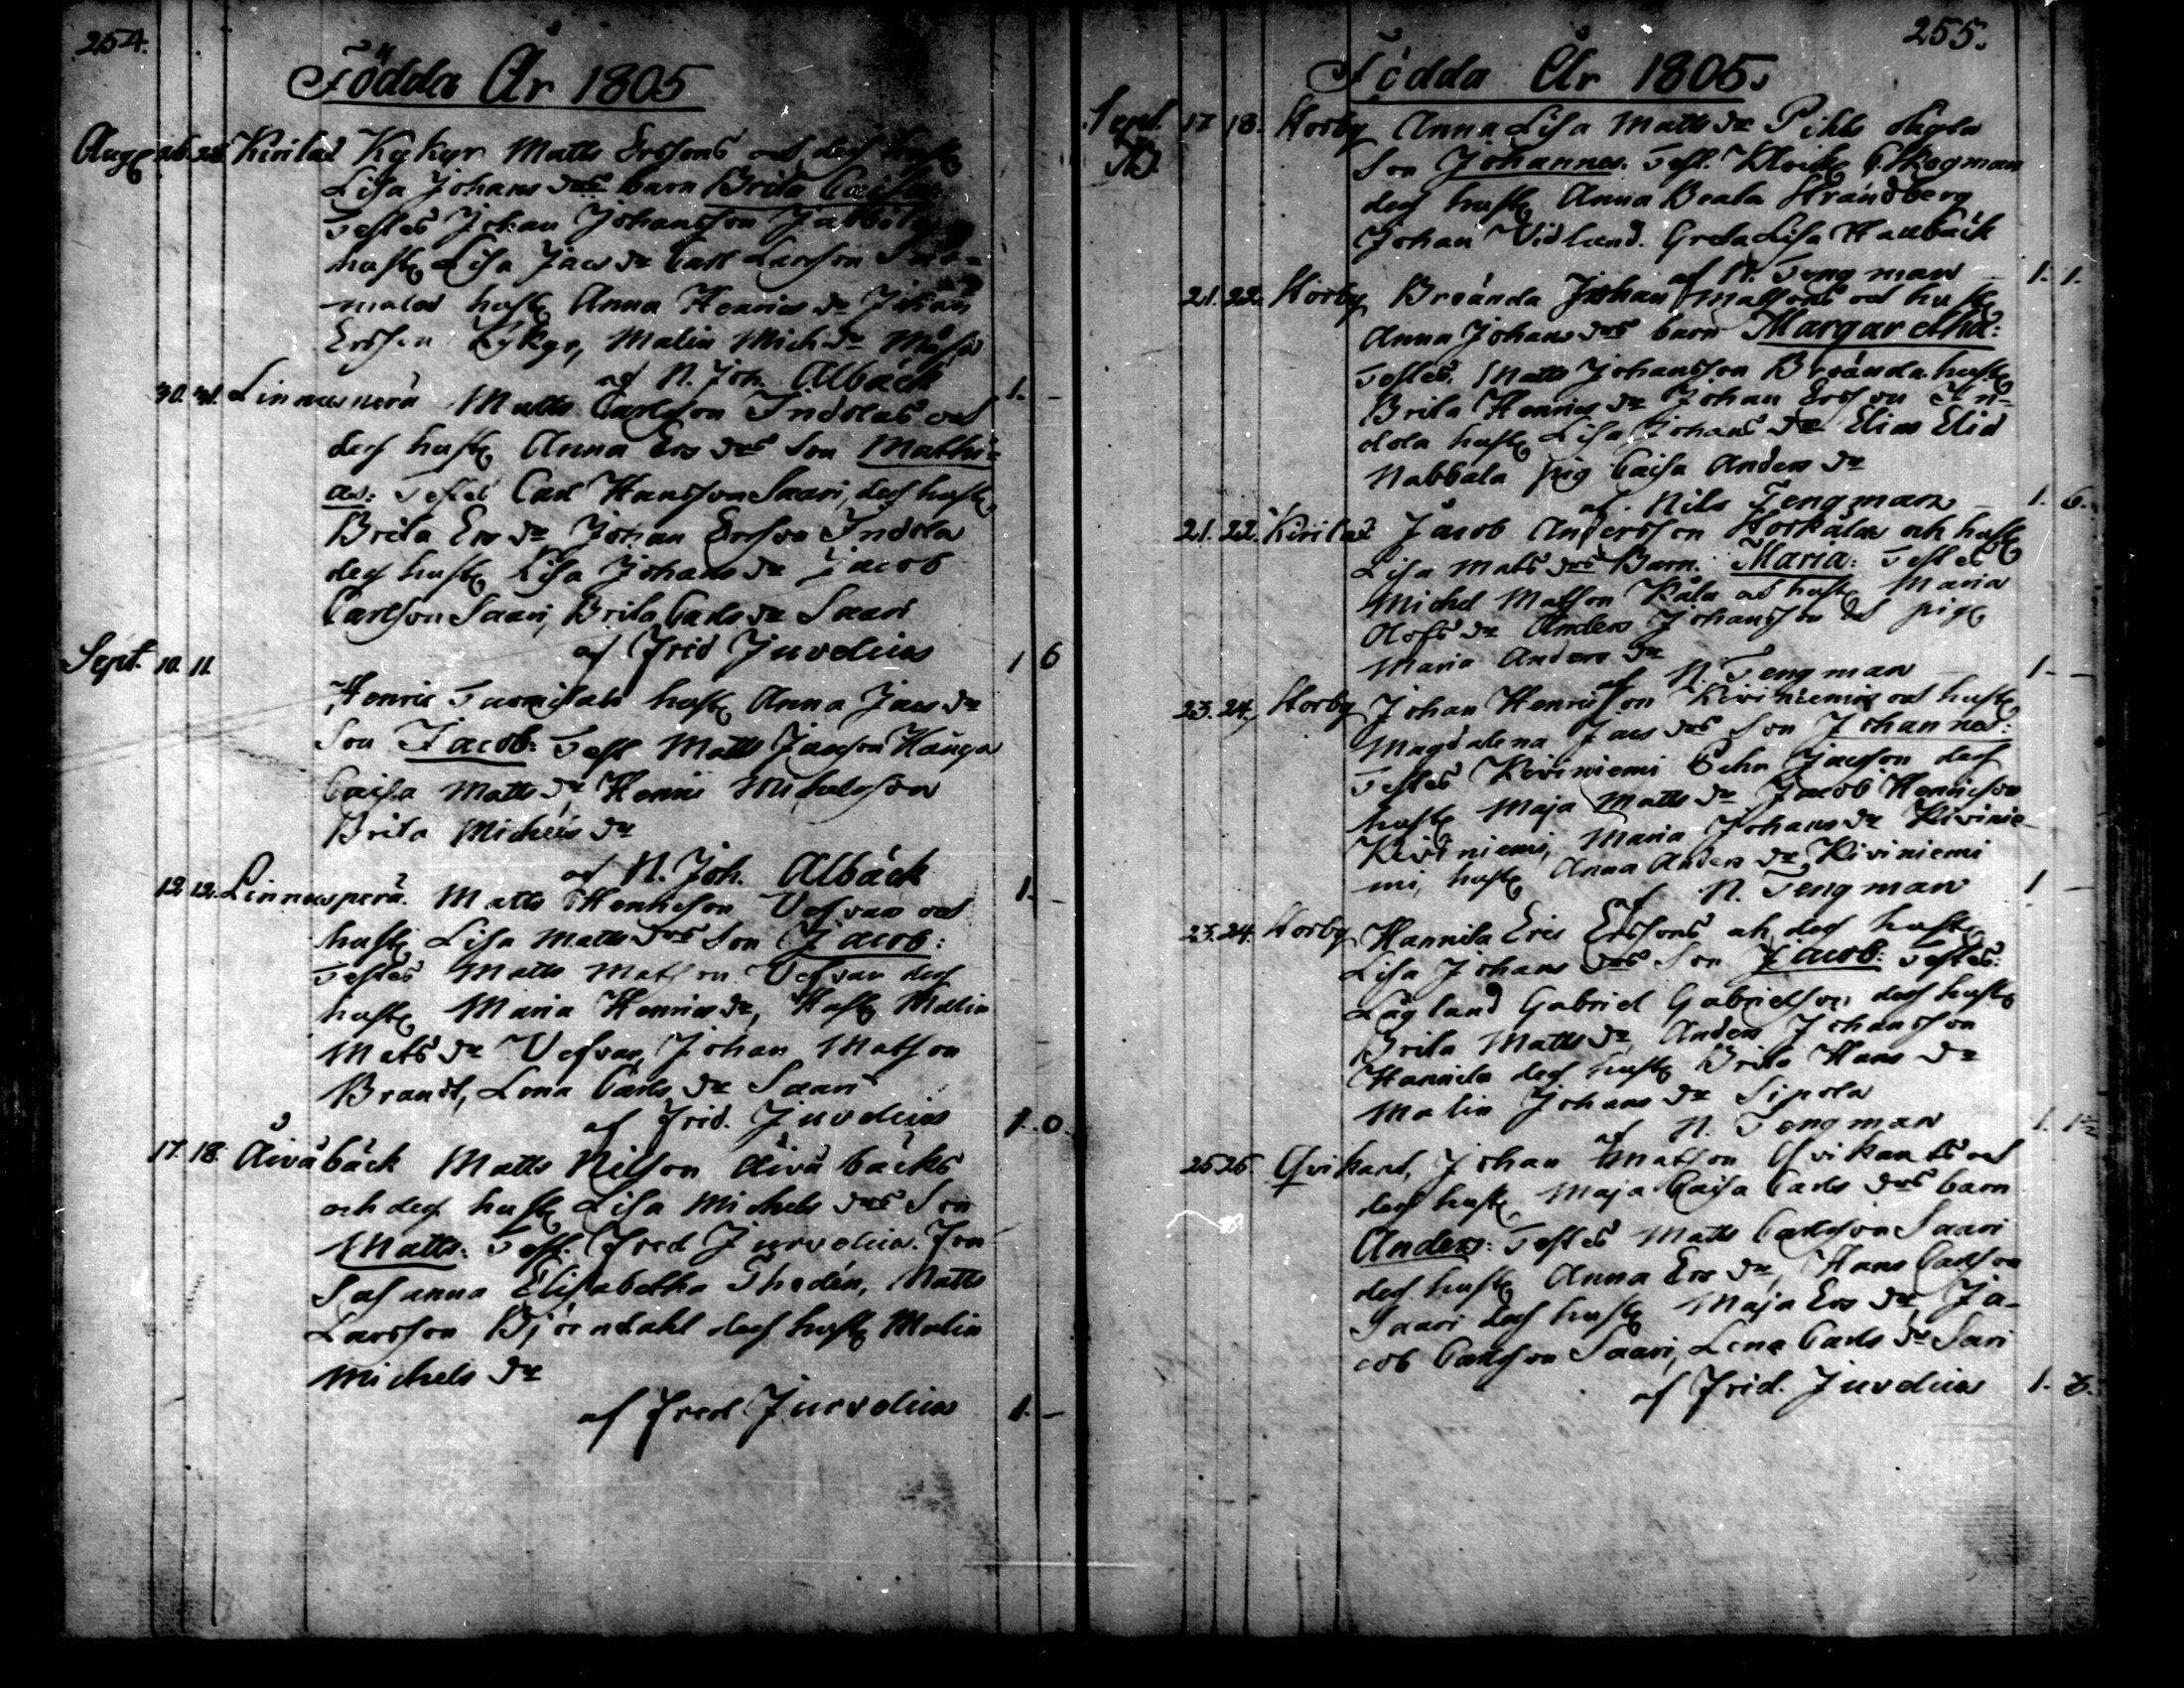 254.
Födda År 1805
Aug 26 28 Kirilax Kykyr Matts Erssons och des hust
Lisa Johans drs barn Brita Caisa
Testes Johan Johansson
hust Lisa Jacs dr Carl Larsson
hust Anna Henrics dr Johan
Ersson Kykyr, Malin Mich dr
af N. Joh. Albäck 1. –
30. 31. Linnusperä Matts Carlsson Indolas och
des hust Anna Ers drs Son Mathi=
as: Testes Carl Hansson Saari, des hust
Brita Ers dr Johan Ersson Indola
des hust Lisa Johans dr Jacob
Carlsson Saari, Brita Carls dr Saari
af Frid Juvelius 1 6
Sept. 10. 11.
Henric hust Anna Jacs dr
Son Jacob: Test Matts Jacson Hauga
Caisa Matts dr, Henric Michelsson
Brita Michels dr
af N. Joh. Albäck 1. –
12 12. Linnusperä. Matts Henricson Vesvar och
hust Lisa Matts drs Son Jacob:
Testes Matts Matson Vesvar des
hust Maria Henrics dr, Hust Malin
Mats dr Vesvar, Johan Matson
Brandt, Lena Carls dr Saari
af Frid. Juvelius 1. 0.
17. 18. Äiväbäck Matts Nilson Äiväbäcks
och des hust Lisa Michels drs Son
Matts: Test. Fred Juvelius. Fru
Susanna Elisabetha Thedén, Matts
Larsson Björndahl des hust Malin
Michels dr
af Fred Juvelius 1. –
255.
Födda År 1805.
Sept. 17 18. Korby Anna Lisa Matts dr Pihls oägta
Son Johannes. Test. Skogman
des hust Anna Beata Strandberg
Johan Vidlund. Greta Lisa Hallbäck
af N. Tengman – 1. 1.
21. 22. Korby Brända Johan Matsons och hust
Anna Johans drs barn Margaretha:
Testes. Matts Johansson Brända hust
Brita Henrics dr Johan Ersson In=
dola hust Lisa Johans dr Elias Elia
Nabbala pig Caisa Anders dr
af. Nils Tengman 1. 6.
21. 22. Kirilax Jacob Andersson Korkåla och hust
Lisa Mats drs Barn. Maria: Testes
Michel Matson Kåla och hust Maria
Olofs dr Anders Johansson och pig
Maria Anders dr
af N. Tengman 1 – –
23. 24. Korby Johan Henricson Kiviniemis och hust
Magdalena Jacs drs Son Johannes:
Testes Kiviniemi Jacson des
hust Maja Matts dr Jacob Henricson
Kiviniemi, Maria Johans dr Kivinie-
mi, hust Anna Anders dr Kiviniemi
af N. Tengman 1 –
23. 24. Korby Hannila Eric Erssons och des hust
Lisa Johans drs Son Jacob: Testes:
Lågland Gabriel Gabrielson des hust
Brita Matts dr, Anders Johansson
Hannila des hust Brita Hans dr
Malin Johans dr Sipola
af N. Tengman 1.
25 26 Qvikant, Johan Matson Qvikants och
des hust Maja Caisa Carls drs barn
Anders: Testes Matts Carlsson Saari
des hust Anna Ers dr, Hans Carlson
Saari des hust Maja Ers dr, Ja-
cob Carlsson Saari, Lena Carls dr Sari
af Frid. Juvelius 1. 8.